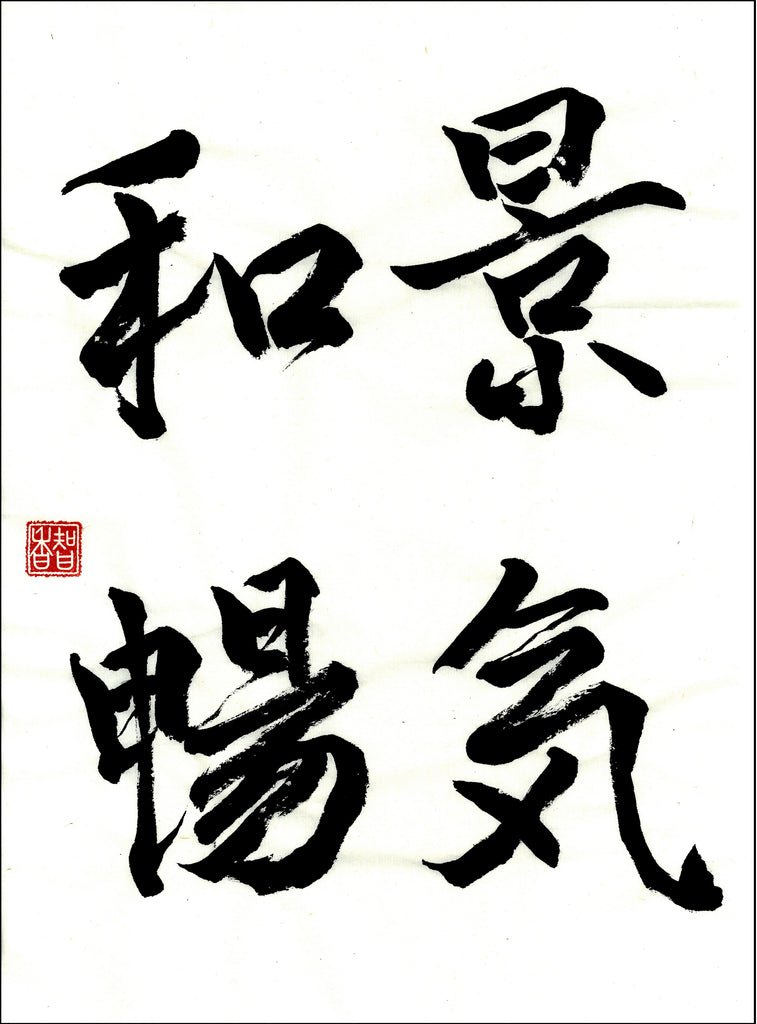 景気
和暢
智香